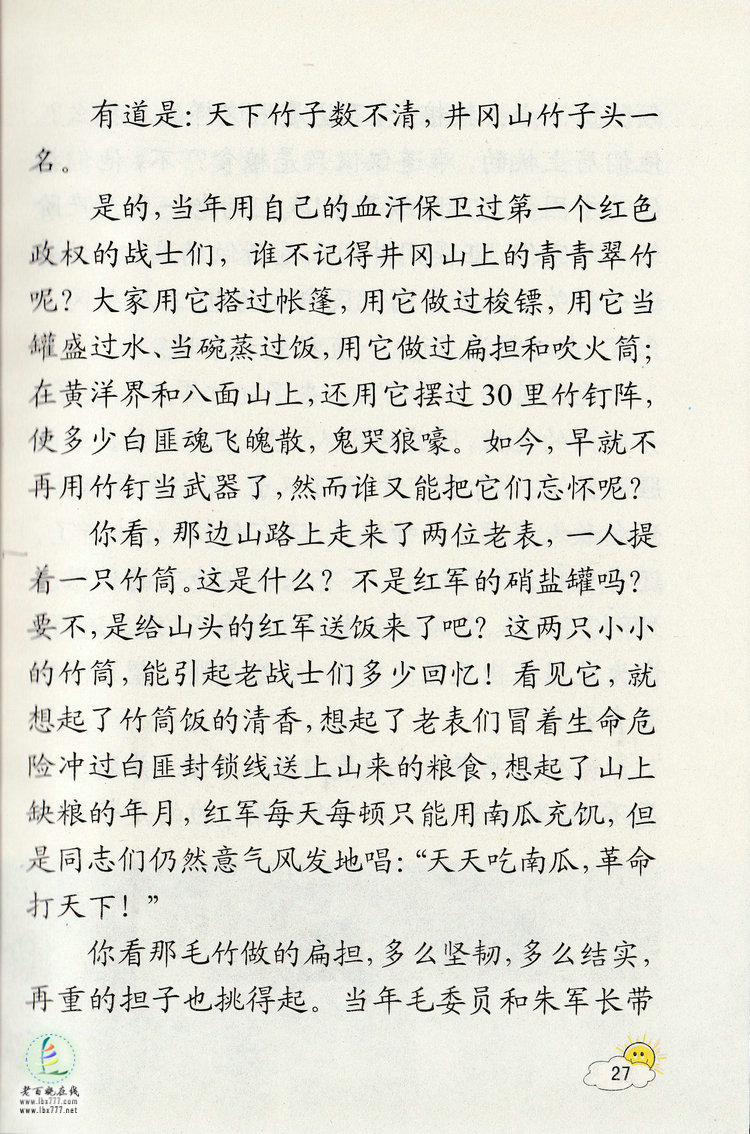 有道是：天下竹子数不清，井冈山竹子头一
名。
是的，当年用自己的血汗保卫过第一个红色
政权的战士们，谁不记得井冈山上的青青翠竹
呢？大家用它搭过帐篷，用它做过梭镖，用它当
罐盛过水、当碗蒸过饭，用它做过扁担和吹火筒；
在黄洋界和八面山上，还用它摆过30里竹钉阵，
使多少白匪魂飞魄散，鬼哭狼嚎。如今，早就不
再用竹钉当武器了，然而谁又能把它们忘怀呢？
你看，那边山路上走来了两位老表，一人提
着一只竹筒。这是什么？不是红军的硝盐罐吗？
要不，是给山头的红军送饭来了吧？这两只小小
的竹筒，能引起老战士们多少回忆！看见它，就
想起了竹筒饭的清香，想起了老表们冒着生命危
险冲过白匪封锁线送上山来的粮食，想起了山上
缺粮的年月，红军每天每顿只能用南瓜充饥，但
是同志们仍然意气风发地唱：“天天吃南瓜，革命
打天下！”
你看那毛竹做的扁担，多么坚韧，多么结实，
再重的担子也挑得起。当年毛委员和朱军长带
27
老百晓在线
www.lbx777.com
www.lbx777.net